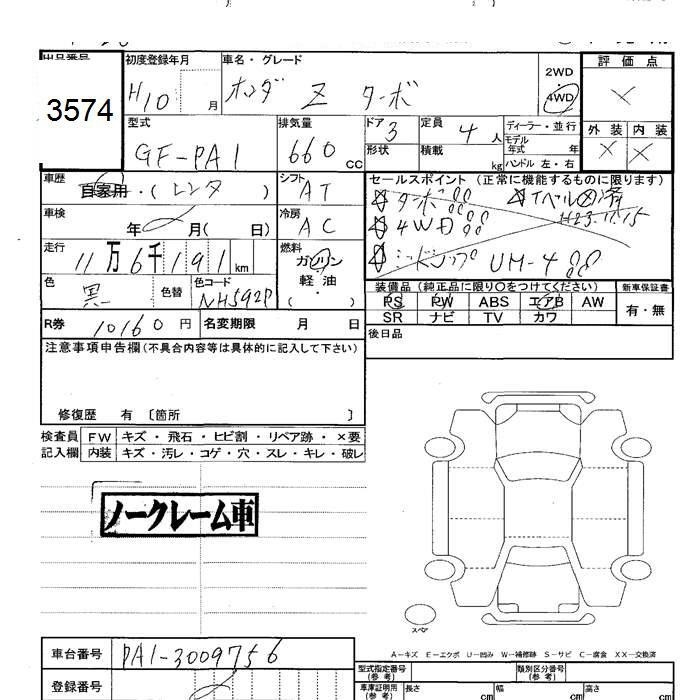 出品番号 初度登録年月 車名・グレード 評価点
3574 H10 月 ホンダ Z ターボ 2WD 4WD ×
型式 排気量 ドア 定員 ディーラー・並行 外装 内装
GF-PA1 660 cc 3 4 人 モデル年式 年 × ×
形状 積載 kg ハンドル 左・右
車歴 自家用・(レンタ) シフト AT セールスポイント (正常に機能するものに限ります)
ターボ
車検 年 月(日) 冷房 AC 4WD H23.11.15
走行 11万6千191km 燃料 ガソリン・軽油・( ) UM-4
色 黒 色替 色コード NH592P 装備品(純正品に限り○をつけてください) 新車保証書
PS PW ABS エアB AW 有・無
SR ナビ TV カワ
R券 10160円 名変期限 月 日 後日品
注意事項申告欄(不具合内容等は具体的に記入して下さい)
修復歴 有 〔箇所 〕
検査員 FW キズ・飛石・ヒビ割・リペア跡・×要
記入欄 内装 キズ・汚レ・コゲ・穴・スレ・キレ・破レ
ノークレーム車
スペア
A-キズ E-エクボ U-凹み W-補修跡 S-サビ C-腐食 XX-交換済
車台番号 PA1-3009756 型式指定番号(参考) 類別区分番号(参考)
登録番号 車庫証明用(参考) 長さ cm 幅 cm 高さ cm